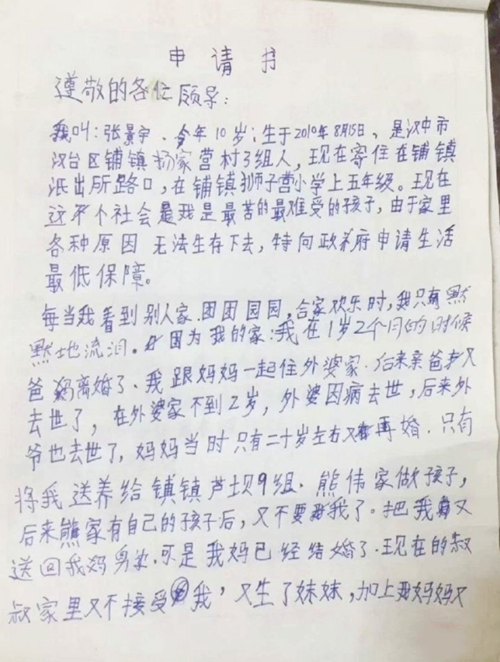 申请书
遵敬的各位领导：
我叫：张景宇．今年10岁；生于2010年8月15日，是汉中市
汉台区铺镇杨家营村3组人，现在寄住在铺镇
派出所路口，在铺镇狮子营小学上五年级。现在
这个社会是我是最苦的最难受的孩子，由于家里
各种原因无法生存下去，特向政府申请生活
最低保障。
每当我看到别人家．团团园园，合家欢乐时，我只有默
默地流泪。因为我的家：我在1岁2个月的时候
爸妈离婚了．我跟妈妈一起住外婆家．后来亲爸又
去世了，在外婆家不到2岁，外婆因病去世，后来外
爷也去世了，妈妈当时只有二十岁左右又再婚．只有
将我送养给铺镇芦坝9组．熊伟家做孩子，
后来熊家有自己的孩子后，又不要我了。把我又
送回我妈身边．可是我妈已经结婚了．现在的叔
叔家里又不接受我，又生了妹妹，加上我妈妈又